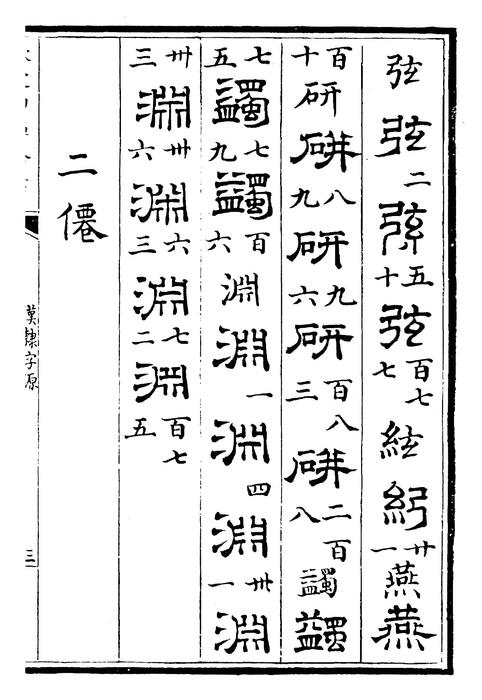 弦弦二弦五十弦百七七絃絃廿一燕燕
百十研硏八九研九六研百八三硏二百八蠲蠲
七五蠲七九蠲百六淵淵一淵四淵卅一淵
卅三淵卅六淵六三淵七二淵百七五
二僊
漢隸字原
三